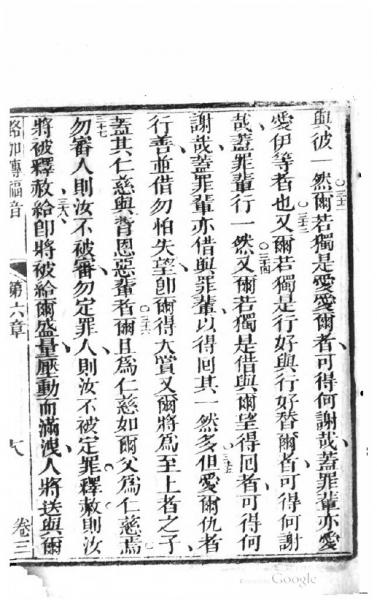 與彼一然爾若獨是愛愛爾者可得何謝哉蓋罪輩亦愛
三十二
愛伊等者也又爾若獨是行好與行好替爾者可得何謝
三十三
哉蓋罪輩行一然又爾若獨是借與爾望得囘者可得何
三十四
謝哉蓋罪輩亦借與罪輩以得囘其一然多但愛爾仇者
三十五
行善並借勿怕失望卽爾得大賞又爾將為至上者之子
蓋其仁慈與背恩惡輩者爾且爲仁慈如爾父爲仁慈焉
三十六
勿審人則汝不被審勿定罪人則汝不被定罪釋赦則汝
三十七
將被釋赦給卽將被給爾盛量壓動而滿洩人將送與爾
三十八
路加傳福音
第六章
卷三
Google